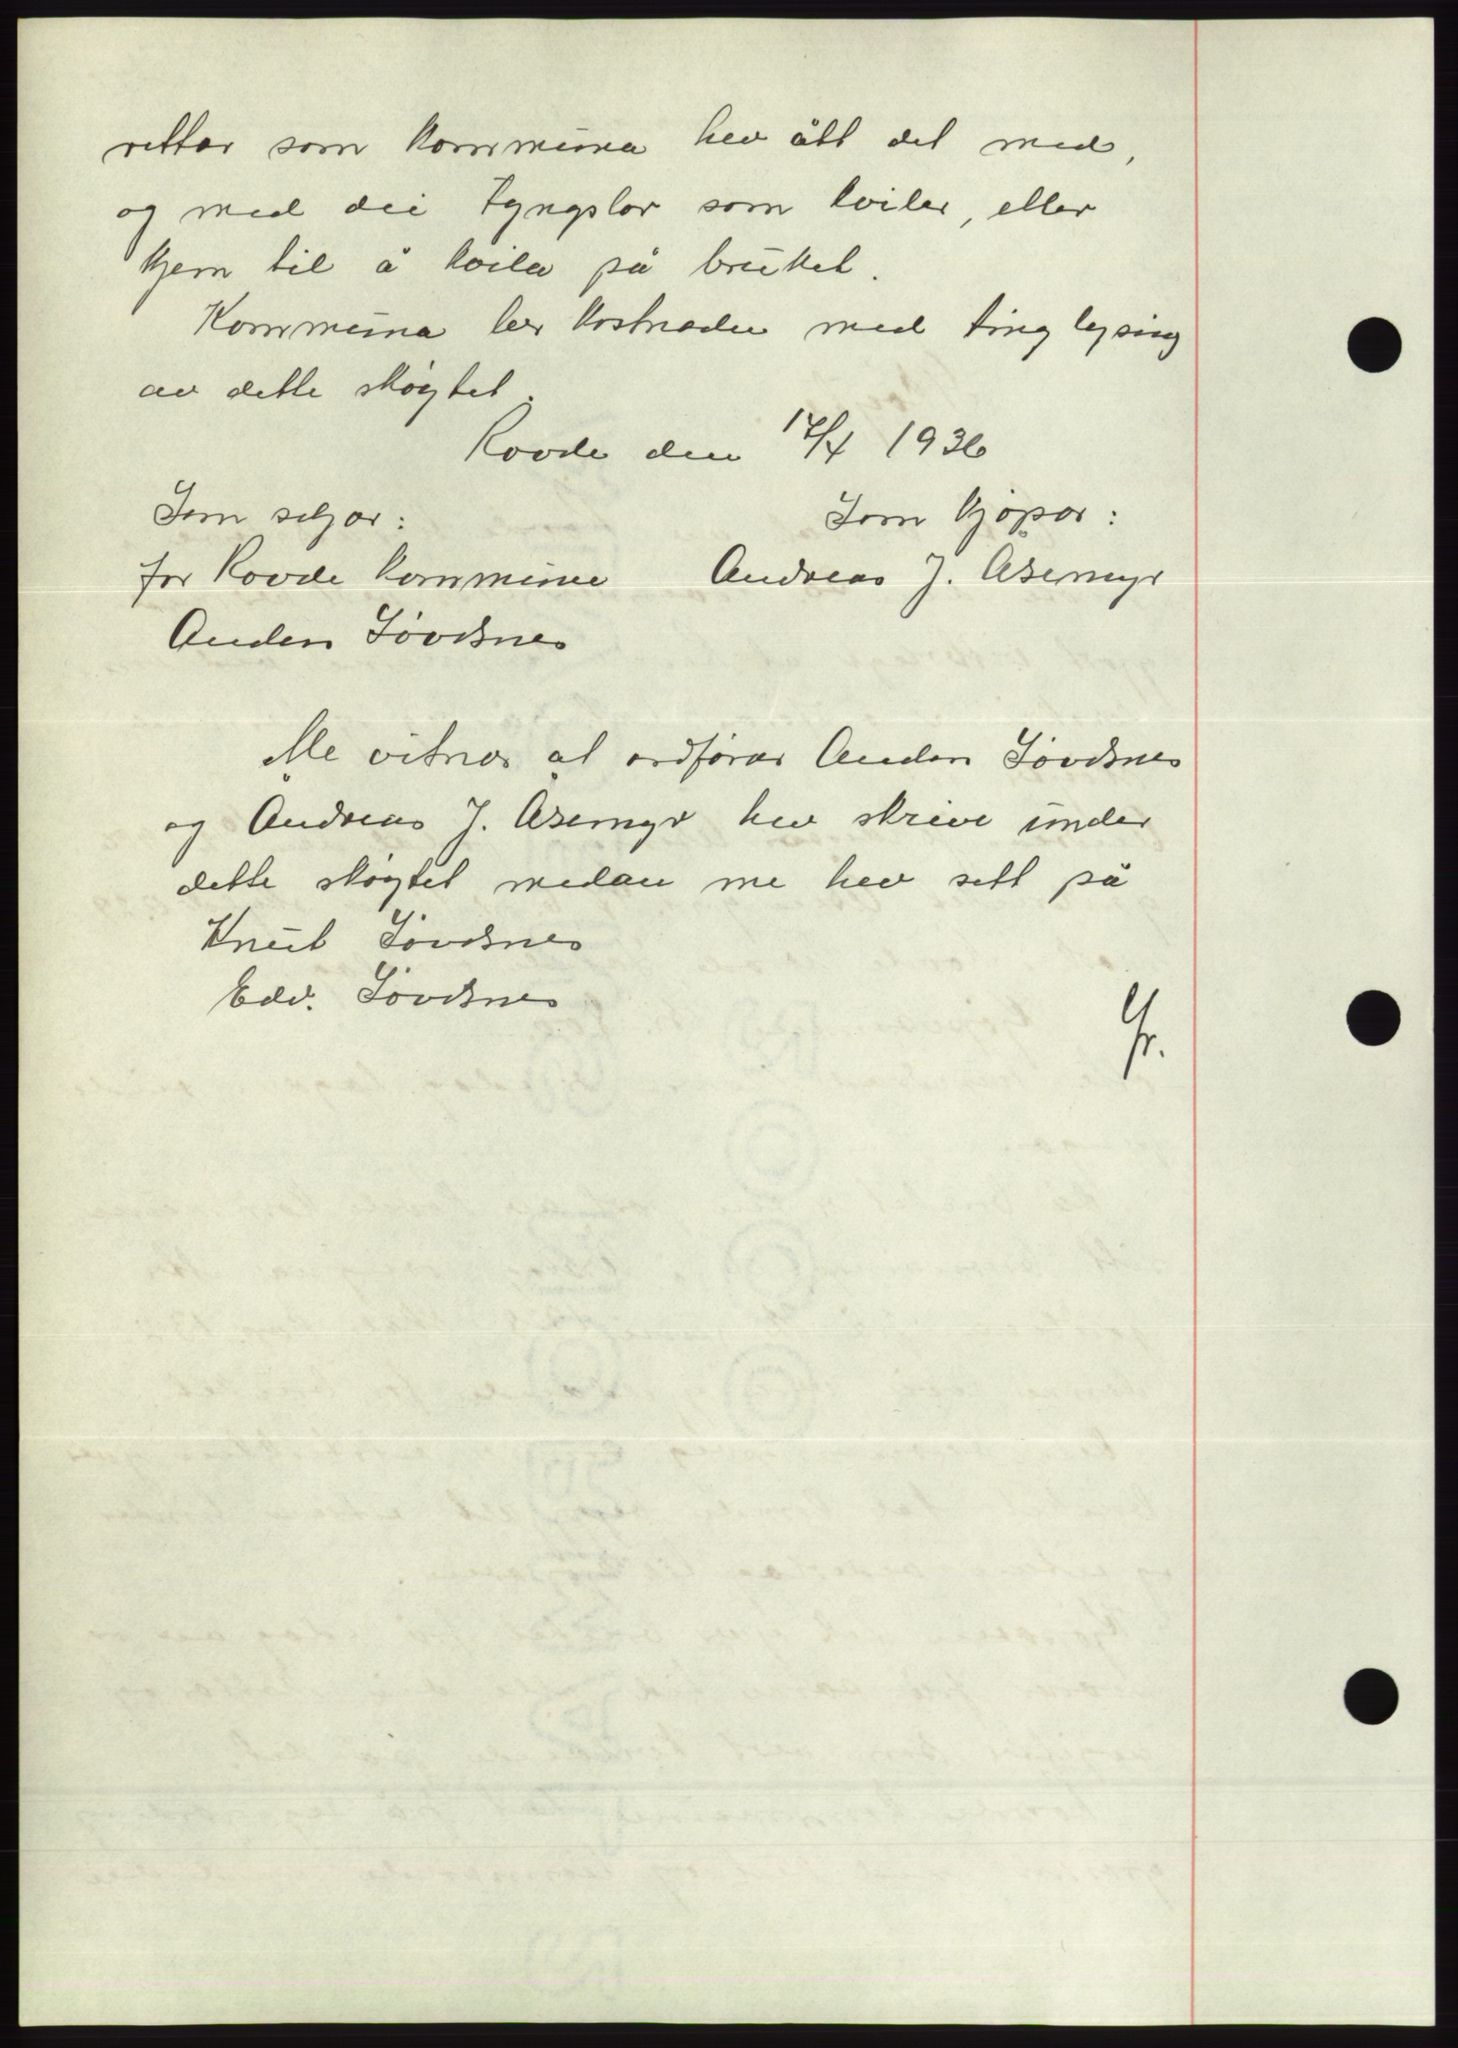 rettar som kommuna hev ått det med,
og med dei tyngslor som kviler, eller
kjem til å kvila på bruket.
Kommuna ber kostnaden med tinglysing
av dette skøytet.
Rovde den 17/4 1936
Som seljar:
Som kjøpar:
for Rovde kommune
Andreas J. Åsemyr
Anders Søvdsnes
Me vitnar at ordførar Anders Søvdsnes
og Andreas J. Åsemyr hev skrive under
dette skøytet medan me hev sett på
Knut Søvdsnes
Edv. Søvdsnes